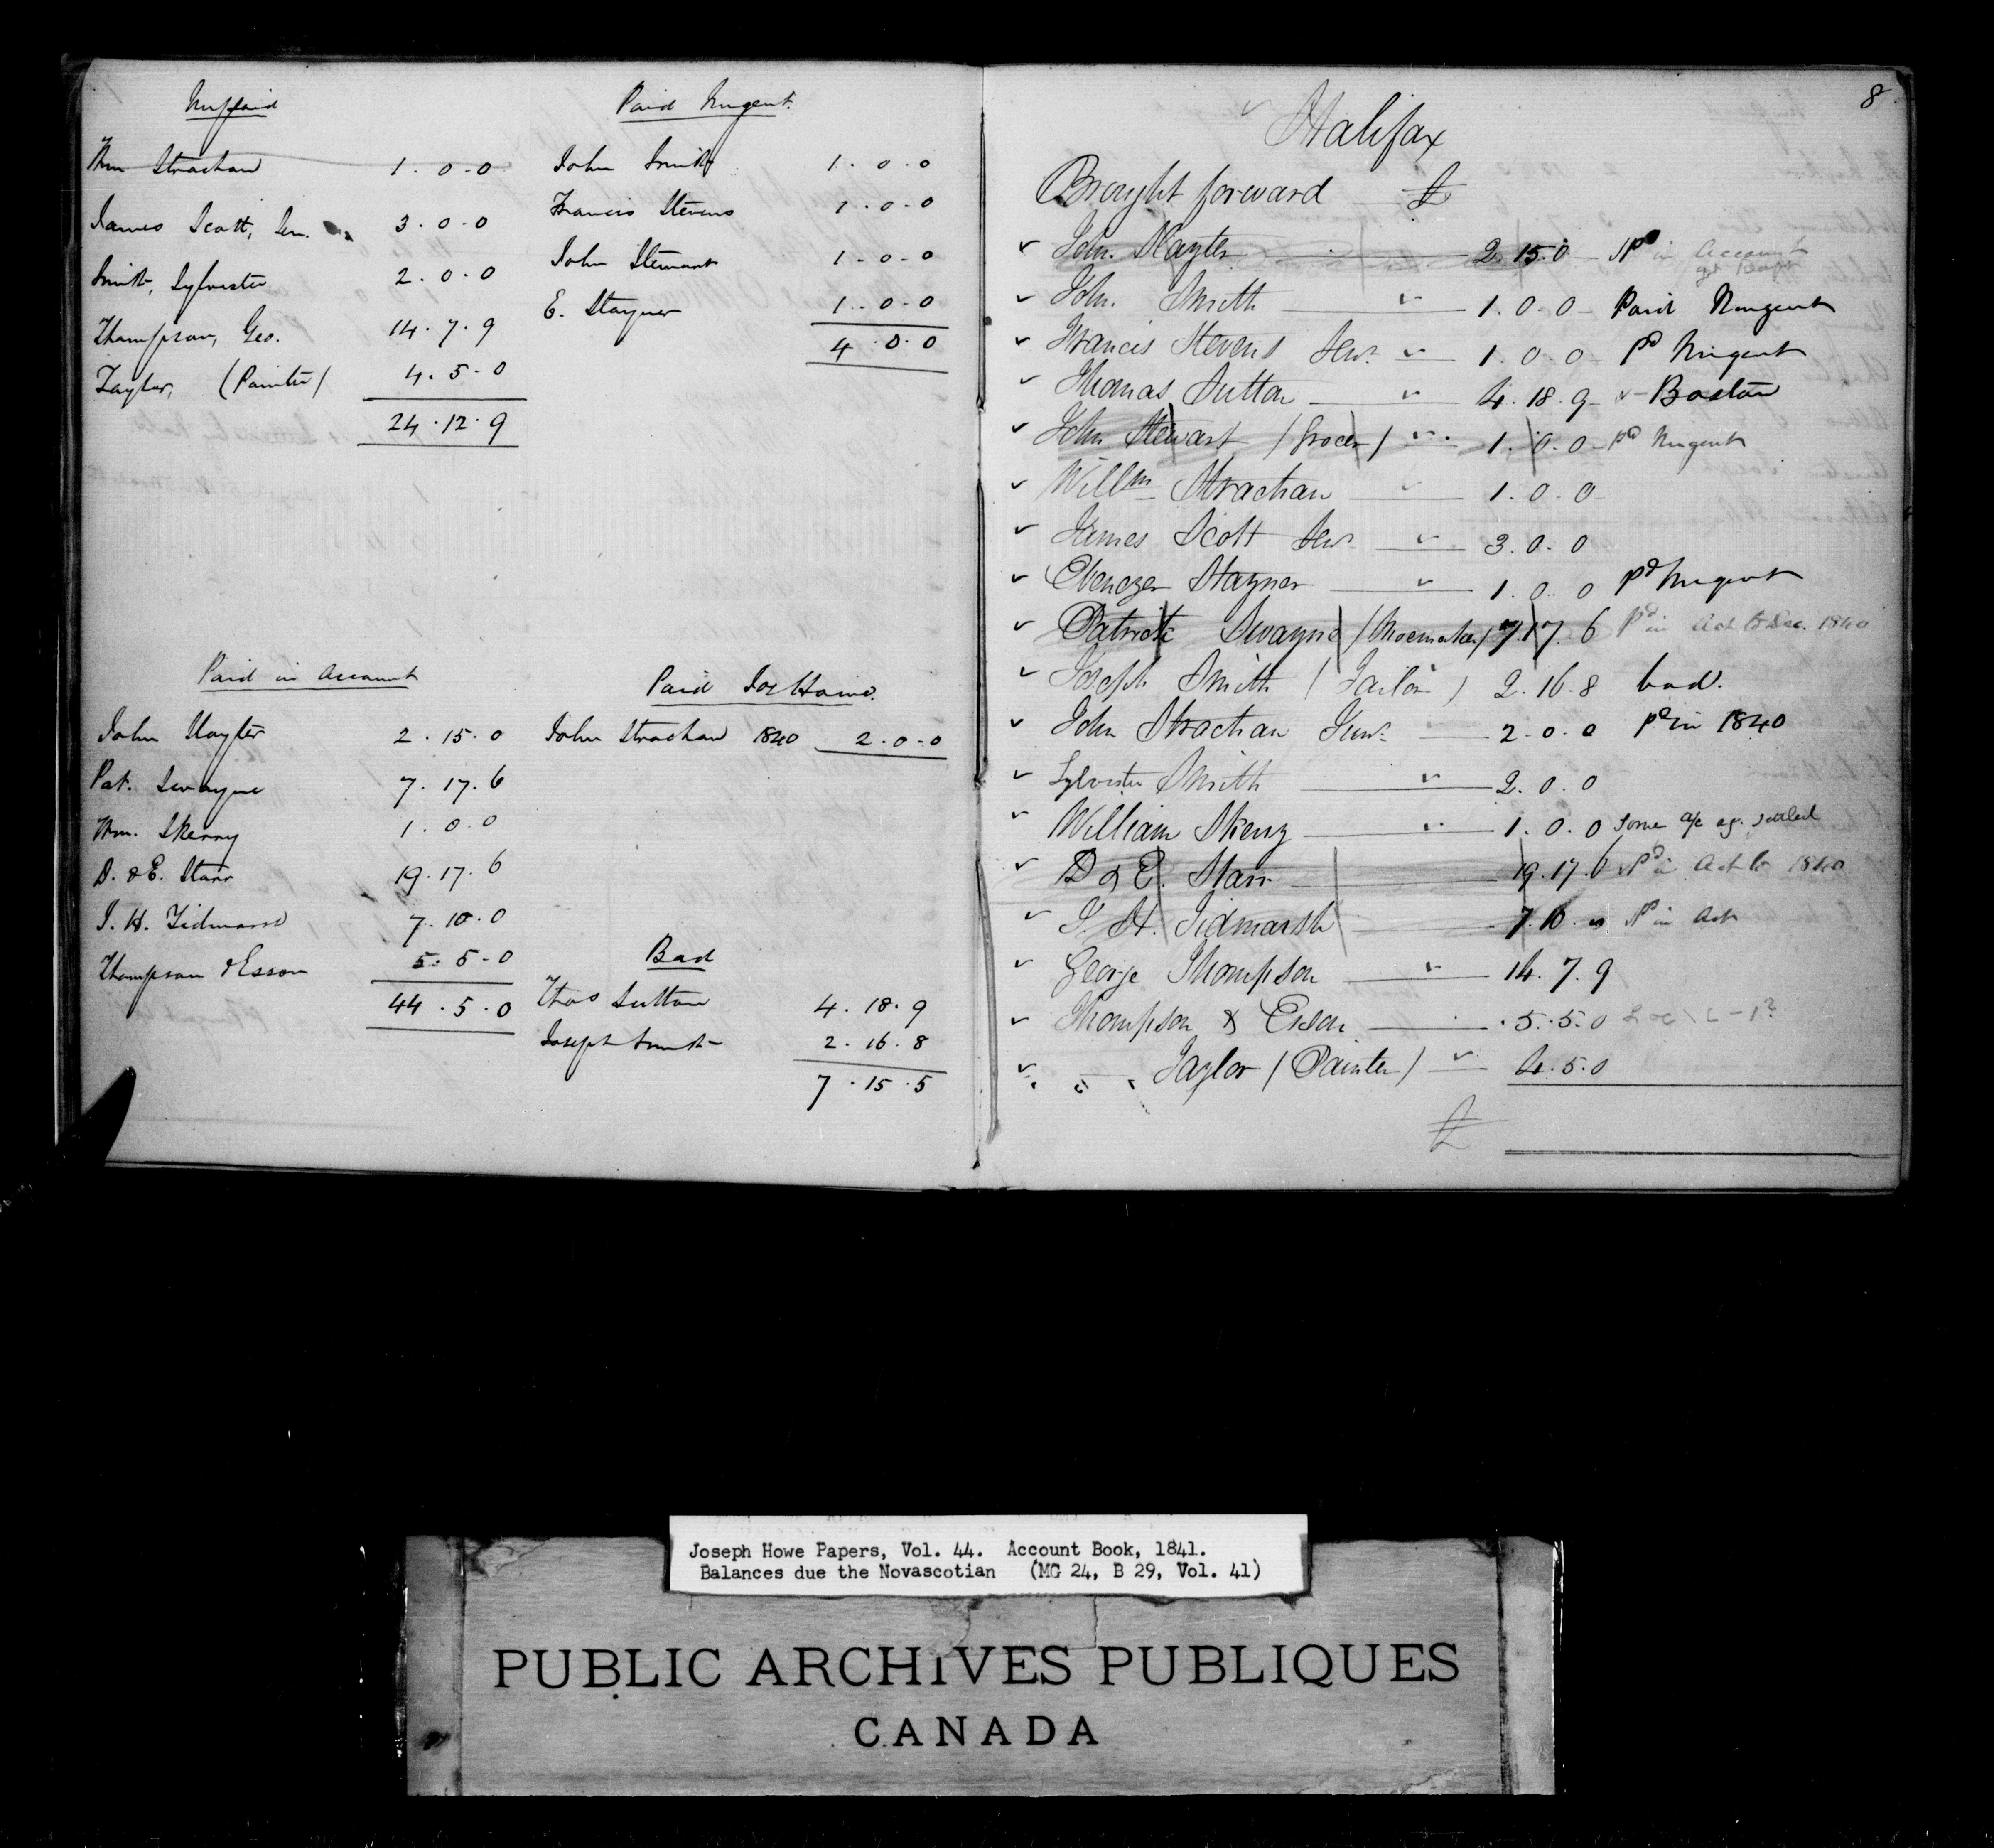 Unpaid
Wm Strachan 1. 0. 0
James Scott, Sen. 3. 0. 0
Smith, Sylvester 2. 0. 0
Thompson, Geo. 14. 7. 9
Taylor, (Painter) 4. 5. 0
24. 12. 9
Paid Nugent.
John Smith 1. 0. 0
Francis Stevens 1. 0. 0
John Stewart 1. 0. 0
E. Stayner 1. 0. 0
4. 0. 0
Paid in Account
John Slayter 2. 15. 0
Pat. Swayne 7. 17. 6
Wm. Skerry 1. 0. 0
D. & E. Starr 19. 17. 6
J. H. Tidmarsh 7. 10. 0
Thompson & Esson 5. 5. 0
44. 5. 0
Paid Jos Howe.
John Strachan 1840 2. 0. 0
Bad
Thos Sutton 4. 18. 9
Joseph Smith 2. 16. 8
7. 15. 5
8
Halifax
Brought forward £
John Slayter 2. 15. 0 Pd in Account
John Smith " 1. 0. 0 Paid Nugent
Francis Stevens Senr " 1. 0. 0 Pd Nugent
Thomas Sutton " 4. 18. 9 Boston
John Stewart (Grocer) " 1. 0. 0 Pd Nugent
Willm Strachan " 1. 0. 0
James Scott Senr " 3. 0. 0
Ebenezer Stayner " 1. 0. 0 Pd Nugent
Patrick Swayne (Shoemaker) 7. 17. 6 Pd in Act to Dec. 1840
Joseph Smith (Tailor) 2. 16. 8 bad.
John Strachan Junr " 2. 0. 0 Pd in 1840
Sylvester Smith " 2. 0. 0
William Skerry " 1. 0. 0 some a/c ag. settled
D & E. Starr 19. 17. 6 Pd in Act to 1840
J. H. Tidmarsh 7. 10. 0 Pd in Act
George Thompson " 14. 7. 9
Thompson & Esson 5. 5. 0
" Taylor (Painter) " 4. 5. 0
£
Joseph Howe Papers, Vol. 44. Account Book, 1841.
Balances due the Novascotian (MG 24, B 29, Vol. 41)
PUBLIC ARCHIVES PUBLIQUES
CANADA